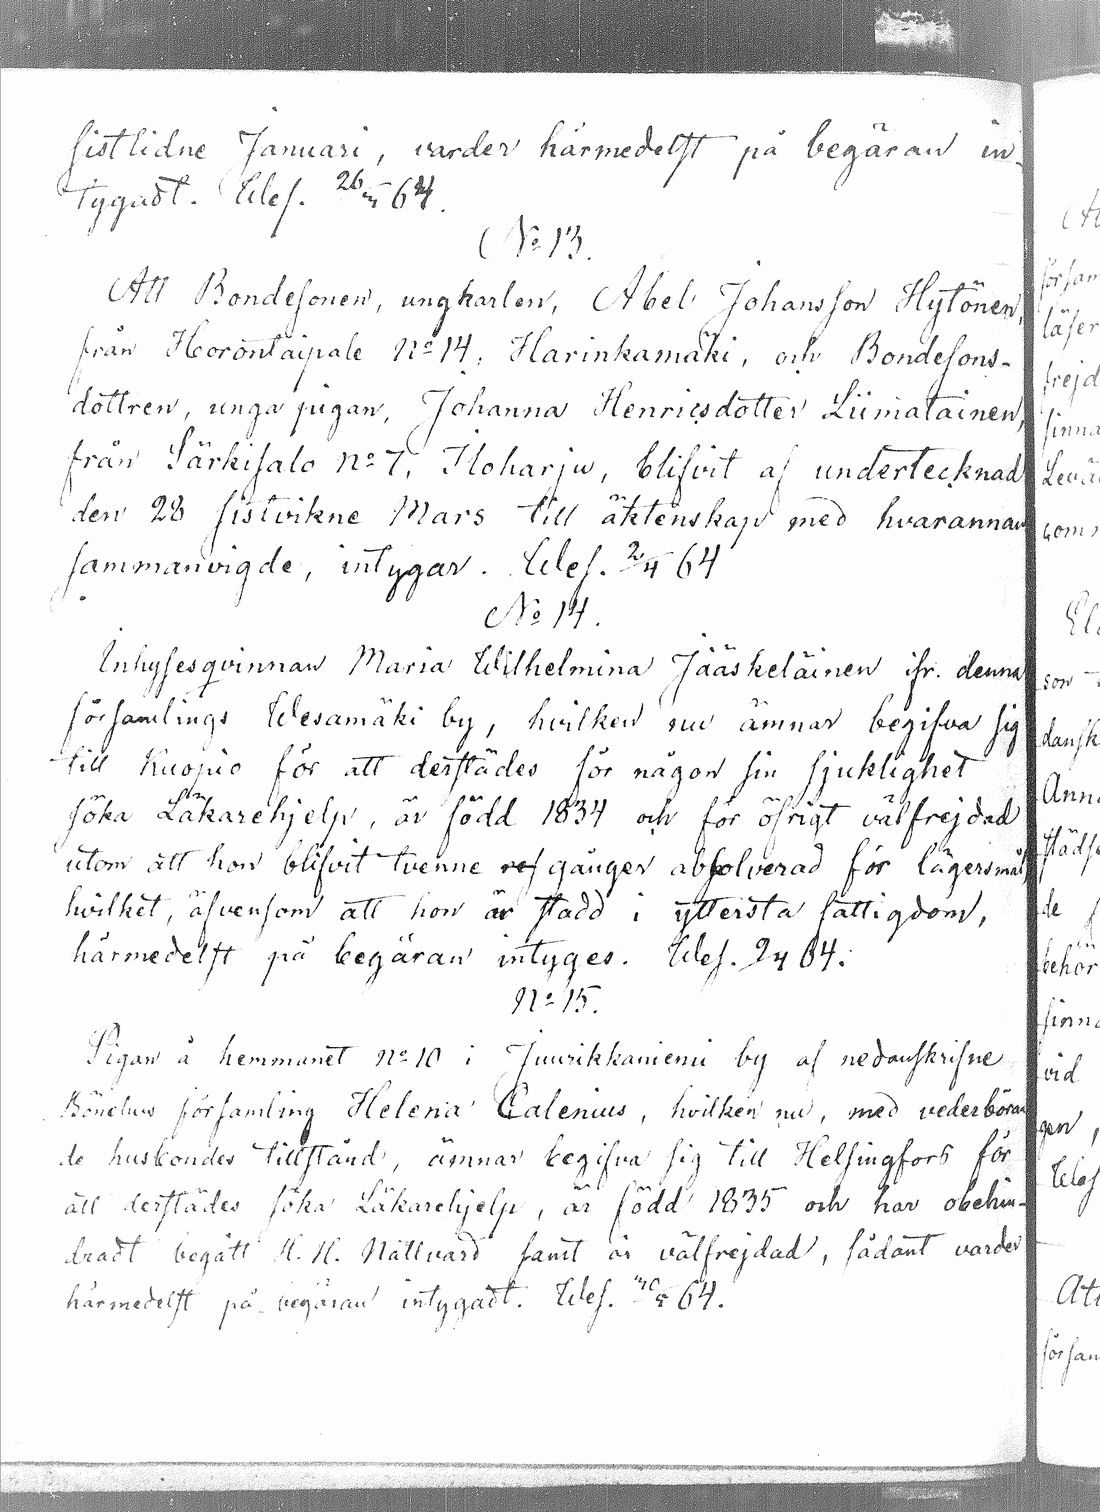 sistlidne Januari, varder härmedelst på begäran in-
tygadt. Wes. 26/3 64.
No 13.
Att Bondesonen, ungkarlen, Abel Johansson Hytönen,
från Horontaipale No 14, Harinkamäki, och Bondesons-
dottren, unga pigan, Johanna Henricsdotter Liimatainen,
från Särkisalo No 7, Iloharju, blifvit af undertecknad
den 28 sistvikne Mars till äktenskap med hvarannan
sammanvigde, intygar. Wes. 2/4 64
No 14.
Inhysesqvinnan Maria Wilhelmina Jääskeläinen ifr. denna
församlings Wesamäki by, hvilken nu ämnar begifva sig
till Kuopio för att derstädes för någon sin sjuklighet
söka Läkarehjelp, är född 1834 och för öfrigt välfrejdad
utom att hon blifvit tvenne gånger absolverad för lägersmål,
hvilket, äfvensom att hon är stadd i yttersta fattigdom,
härmedelst på begäran intyges. Wes. 2/4 64.
No 15.
Pigan å hemmanet No 10 i Juurikkaniemi by af nedanskrifne
församling Helena Calenius, hvilken nu, med vederböran
de husbondes tillstånd, ämnar begifva sig till Helsingfors för
att derstädes söka Läkarehjelp, är född 1835 och har obehin-
dradt begått H. H. Nattvard samt är välfrejdad, sådant varder
härmedelst på begäran intygadt. Wes. 64.